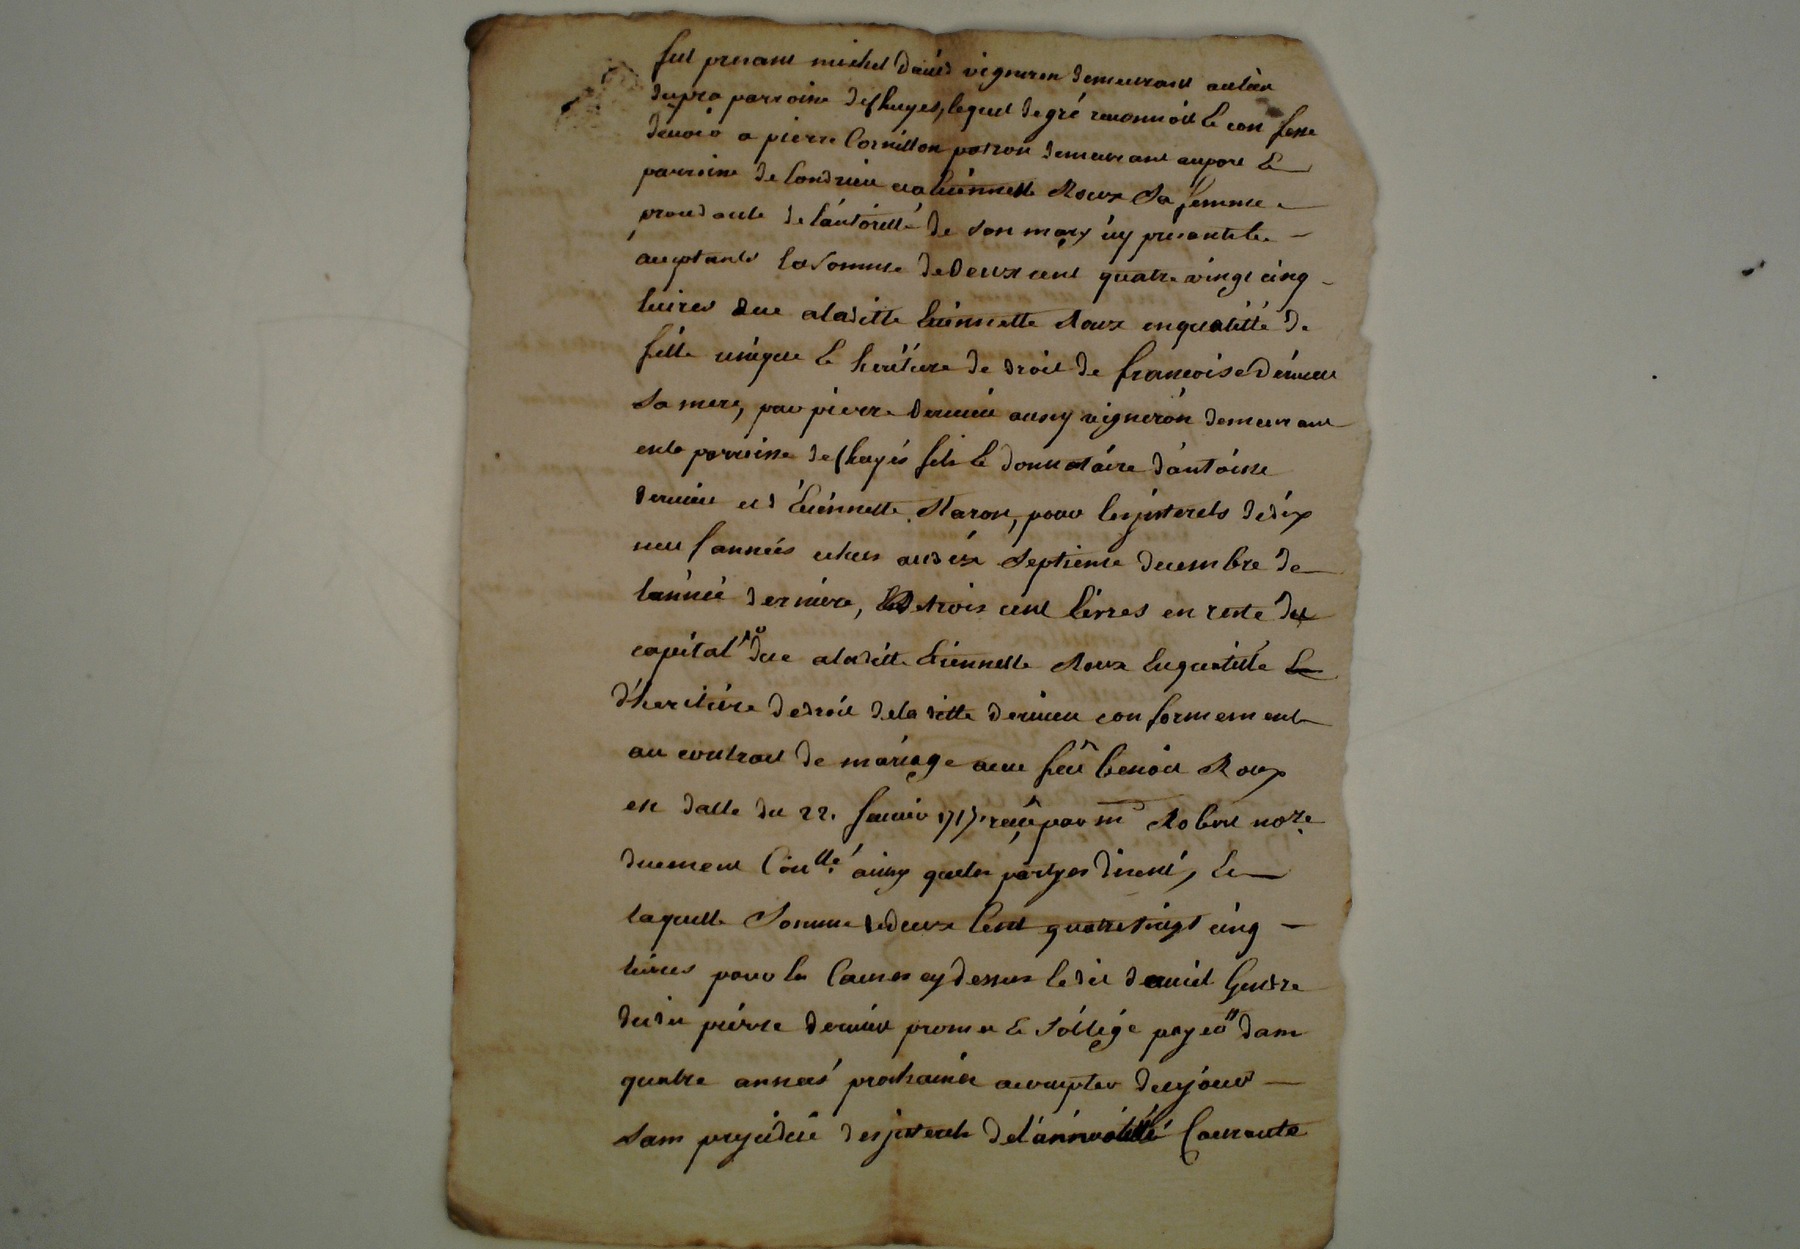 fut present michel David vigneron demeurant au lieu
dupra parroisse des hayes, lequel de gré reconnoit & confesse
devoir a pierre Cornillon patron demeurant au port &
parroisse de Condrieu et a Etiennette Roux Sa femme
procedante de l'autorité de son mary icy presente &
acceptante la Somme de Deux cent quatre vingt cinq
livres due a laditte Etiennette Roux en qualité de
fille unique & heritiere de droit de francoise Dervieu
Sa mere, par pierre Dervieu aussy vigneron demeurant
en la parroisse des hayes fils & donnataire d'antoine
dervieu et d'Etiennette Naron, pour les jnterets de dix
neuf années echus au dix Septieme decembre de
l'année derniere, de trois cent livres en reste de
capital due a laditte Etiennette Roux en qualité
d'heritiere de droit de la ditte dervieu conformement
au contract de mariage avec feu benoit Roux
en datte du 22. Janvier 1717. reçu par me Robert nore
duement Conllé ainsy que les partyes disent, &
laquelle Somme de deux Cent quatre vingt cinq
livres pour les Causes cy dessus ledit david Gendre
dudit pierre dervieu promet & s'oblige payer dans
quatre années prochaines a compter de ce jour
sans prejudice des jnterets de l'annuité Courante